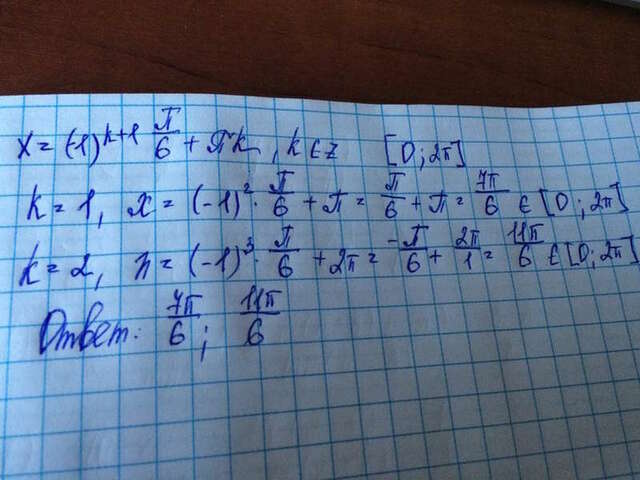 x = (-1)^{k+1} π/6 + πk, k ∈ z [0; 2π]
k = 1, x = (-1)^2 · π/6 + π = π/6 + π = 7π/6 ∈ [0; 2π]
k = 2, x = (-1)^3 · π/6 + 2π = -π/6 + 2π/1 = 11π/6 ∈ [0; 2π]
Ответ: 7π/6; 11π/6